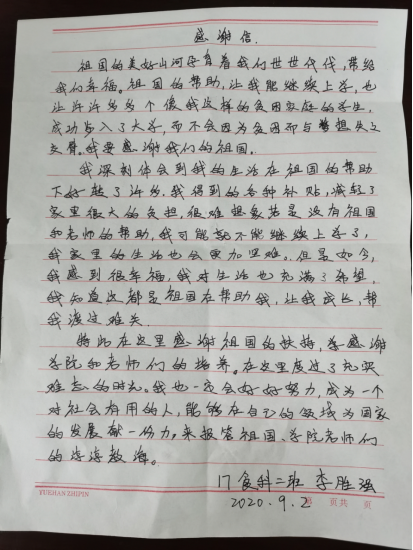 感谢信.
祖国的美好山河孕育着我们世世代代,带给
我们幸福。祖国的帮助,让我能继续上学,也
让许许多多个像我这样的贫困家庭的学生,
成功步入了大学,而不会因为贫困而与梦想失之
交臂。我要感谢我们的祖国。
我深刻体会到我的生活在祖国的帮助
下好转了许多。我得到的各种补贴,减轻了
家里很大的负担,很难想象若是没有祖国
和老师的帮助,我可能就不能继续上学了,
我家里的生活也会更加艰难。但是如今,
我感到很幸福,我对生活也充满了希望,
我知道这都是祖国在帮助我,让我成长,帮
我渡过难关.
特此在这里感谢祖国的扶持,感谢
学院和老师们的培养。在这里度过了充实
难忘的时光。我也一定会好好努力,成为一个
对社会有用的人,能够在自己的领域为国家
的发展献一份力。来报答祖国、学院老师们
的谆谆教诲。
17食科二班 李胜强
2020.9.2
YUEHAN ZHIPIN 页共 页